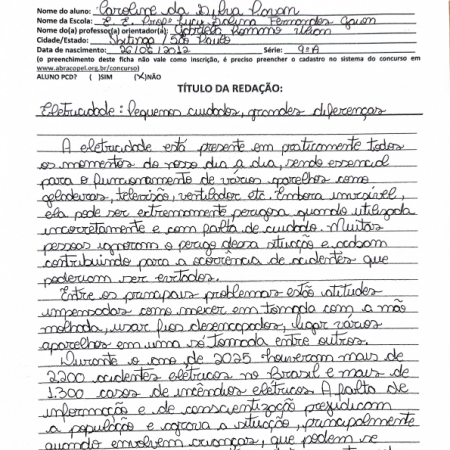 Nome do aluno: Caroline da Silva
Nome da Escola: E. E. Profª
Nome do(a) professor(a) orientador(a): Gabriela
Cidade/Estado: São Paulo
Data de nascimento: 26/06/2012 Série: 9º A
(o preenchimento deste ficha não vale como inscrição, é preciso preencher o cadastro no sistema do concurso em
www.abracopel.org.br/concurso)
ALUNO PCD? ( )SIM (X)NÃO
TÍTULO DA REDAÇÃO:
Eletricidade: Pequenos cuidados, grandes diferenças
A eletricidade está presente em praticamente todos
os momentos do nosso dia a dia, sendo essencial
para o funcionamento de vários aparelhos como
geladeiras, televisão, ventilador etc. Embora invisível,
ela pode ser extremamente perigosa quando utilizada
incorretamente e com falta de cuidado. Muitas
pessoas ignoram o perigo dessa situação e acabam
contribuindo para a ocorrência de acidentes que
poderiam ser evitados.
Entre os principais problemas estão atitudes
impensadas como mexer em tomada com a mão
molhada, usar fios desencapados, ligar vários
aparelhos em uma só tomada entre outros.
Durante o ano de 2025 houveram mais de
2.200 acidentes elétricos no Brasil e mais de
1.300 casos de incêndios elétricos. A falta de
informação e de conscientização prejudicam
a população e agrava a situação, principalmente
quando envolvem crianças, que podem se